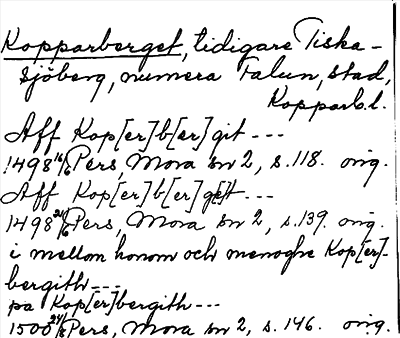 Kopparberget, tidigare Tiska-
sjöberg, numera Falun, stad,
Kopparb.l.
Aff Kop[er]b[er]git ---
1498 16/6 Pers, Mora sn 2, s.118. orig.
Aff Kop[er]b[er]g[i]t ---
1498 Pers, Mora sn 2, s.139. orig.
i mellom honom och menoghe Kop[er]-
bergith ---
pa Kop[er]bergith ---
1500 Pers, Mora sn 2, s. 146. orig.